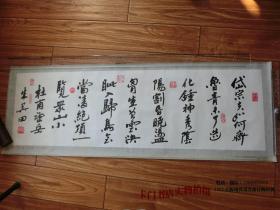 岱宗夫如何齊
魯青未了造
化鍾神秀陰
陽割昏曉盪
胸生曾雲決
眦入歸鳥會
當凌絕頂一
覽衆山小
杜甫望岳
卡门书店实物拍摄